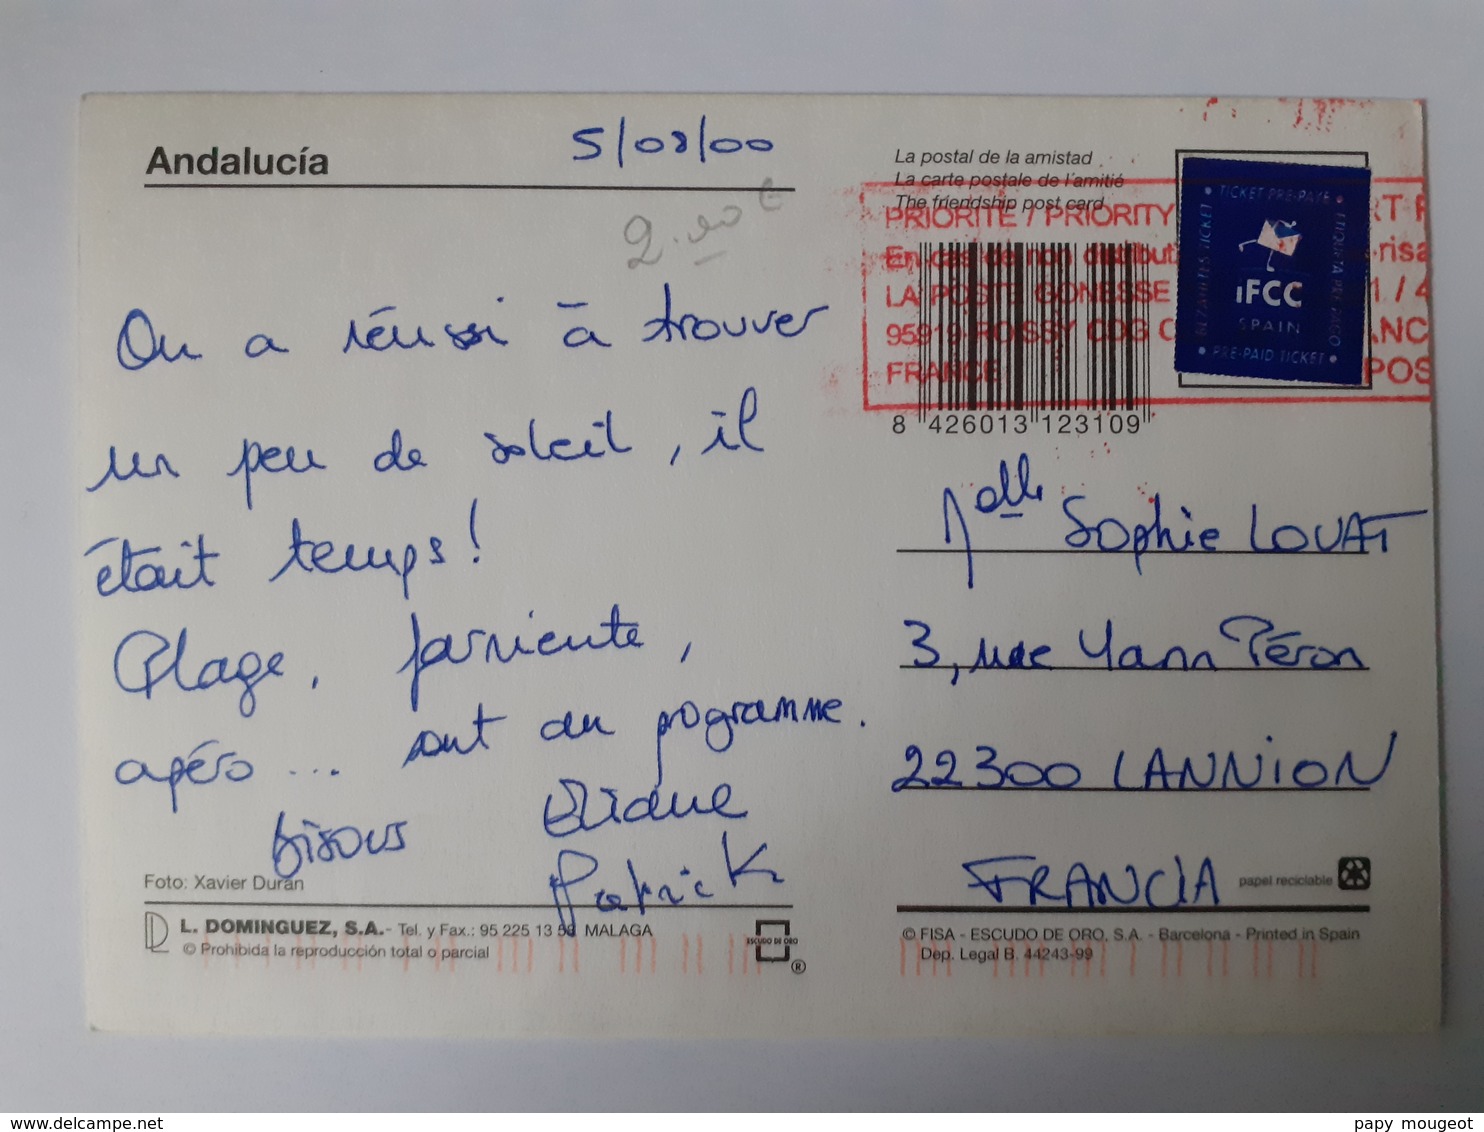 Andalucía
5/08/00
2.00 €
On a réussi à trouver
un peu de soleil, il
était temps!
Plage, farniente,
apéro ... sont au programme.
Bisous
Eliane
Patrick
Foto: Xavier Durán
L. DOMINGUEZ, S.A. - Tel. y Fax.: 95 225 13 58 MALAGA
© Prohibida la reproducción total o parcial
ESCUDO DE ORO
®
La postal de la amistad
La carte postale de l'amitié
The friendship post card
PRIORITE / PRIORITY
En cas de non distribut
LA POSTE GONESSE
95919 ROISSY CDG C
FRANCE
TICKET PRE-PAYE
ETIQUETA PRE-PAGO
BEZAHLTES TICKET
iFCC
SPAIN
PRE-PAID TICKET
8 426013 123109
Melle Sophie LOUAT
3, rue Yann Péron
22300 LANNION
FRANCIA
papel reciclable
© FISA - ESCUDO DE ORO, S.A. - Barcelona - Printed in Spain
Dep. Legal B. 44243-99
papy mougeot